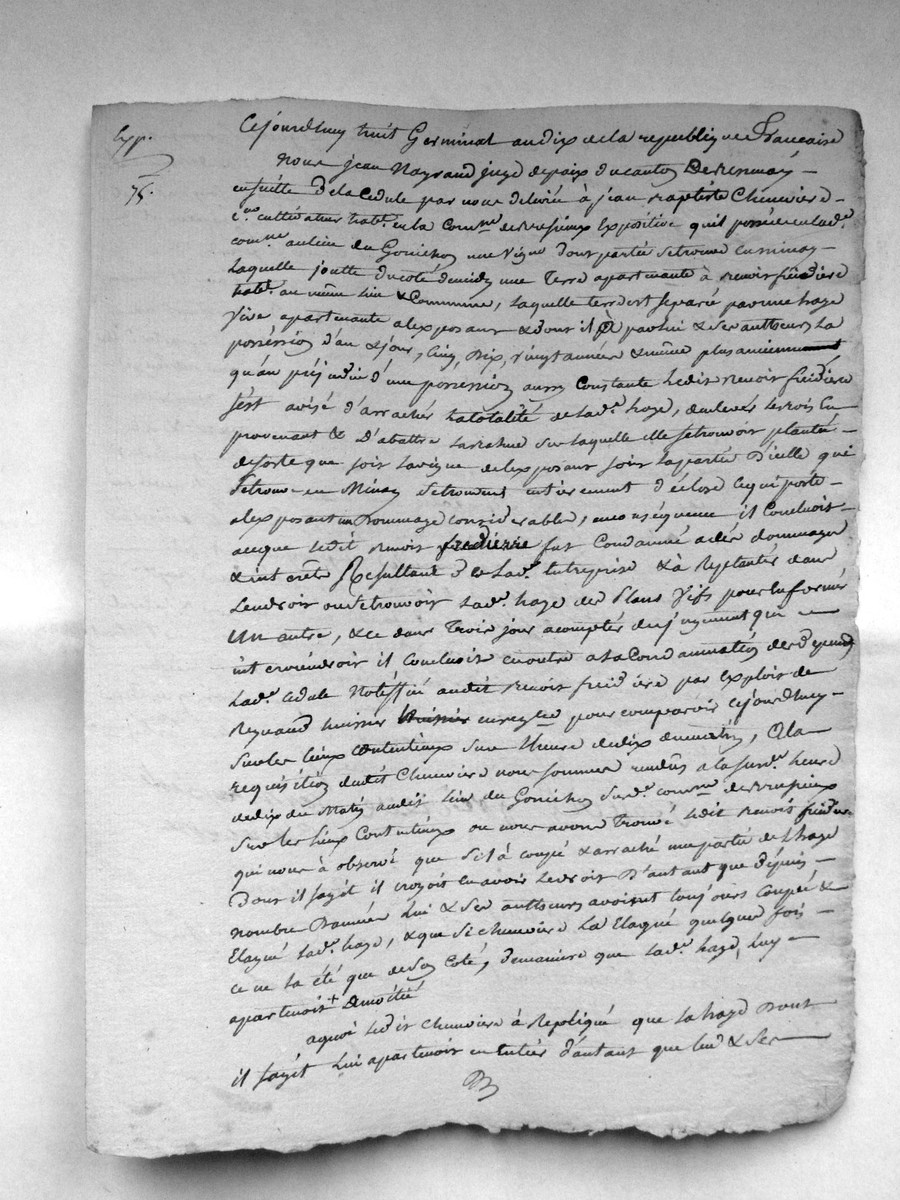 Exp.
75.
Cejourdhuy huit Germinal an dix de la republique francaise
nous jean Nayrand juge depaix du canton De
ensuitte de la Cedule par nous delivrée à jean Baptiste Cheuviere
cultivateur habt. en la Comne. de Expositive quil posséde en lad.e
comne. au lieu du Gonichon une vigne dont partie setrouve en minay
Laquelle joutte du coté demidy une Terre apartenante à benoit
habt. au même lieu & Commune, laquelle terre est séparée par une haye
vive apartenante alexposant & dont il a par lui & ses autheurs La
posséssion d'an & jour, Cinq, Dix, vingt années & même plus anciennement
qu'au préjudice d'une possession aussy Constante ledit benoit
s'est avisé d'arracher latotalité de lad.e haye, denlever lesbois En
provenant & D'abattre sur laquelle elle setrouvoit plantée
desorte que soit lavigne delexposant soit lapartie D'icelle qui
setrouve en Minay setrouvent entierement déclose cequi porte
alexposant un Dommage considerable, en conséquence il Concluoit
aceque ledit benoit fut Condamné auxdommages
& interêts Résultant de Lad.e Entreprise & à Replanter dans
Lendroit ou setrouvoit Lad.e haye des Plans Vifs pour En former
Un autre, & ce dans Trois jours acompter du jugement qui
interviendroit il concluoit en outre a la Condamnation des dépends
Lad.e cedule Notiffiée audit benoit par Exploit de
Reynaud huissier pour comparoir cejourdhuy
Sur les lieux Contentieux Sur lheure dedix dumatin, A la
requisition dudit Cheuviere nous sommes rendus a la susd.e heure
dedix du Matin audit lieu du Gonichon Susd.e comne. de
Sur les Lieux Contentieux ou nous avons Trouvé ledit benoit
qui nous à observé que sil à coupé & arraché une partie de lhaye
Dont il sagit il croyoit En avoir Ledroit D'autant que depuis
nombre Dannées Lui & Ses autheurs avoient toujours Coupée &
Elaguée Lad.e haye, & que si cheuviere La Elagué quelque fois
ce ne la été que deson Coté, demaniere que Lad.e haye Luy
apartenoit + De moitié
aquoi ledit Cheuviere à Repliqué que la haye Dont
il sagit Lui apartenoit en entier d'autant que lui & Ses